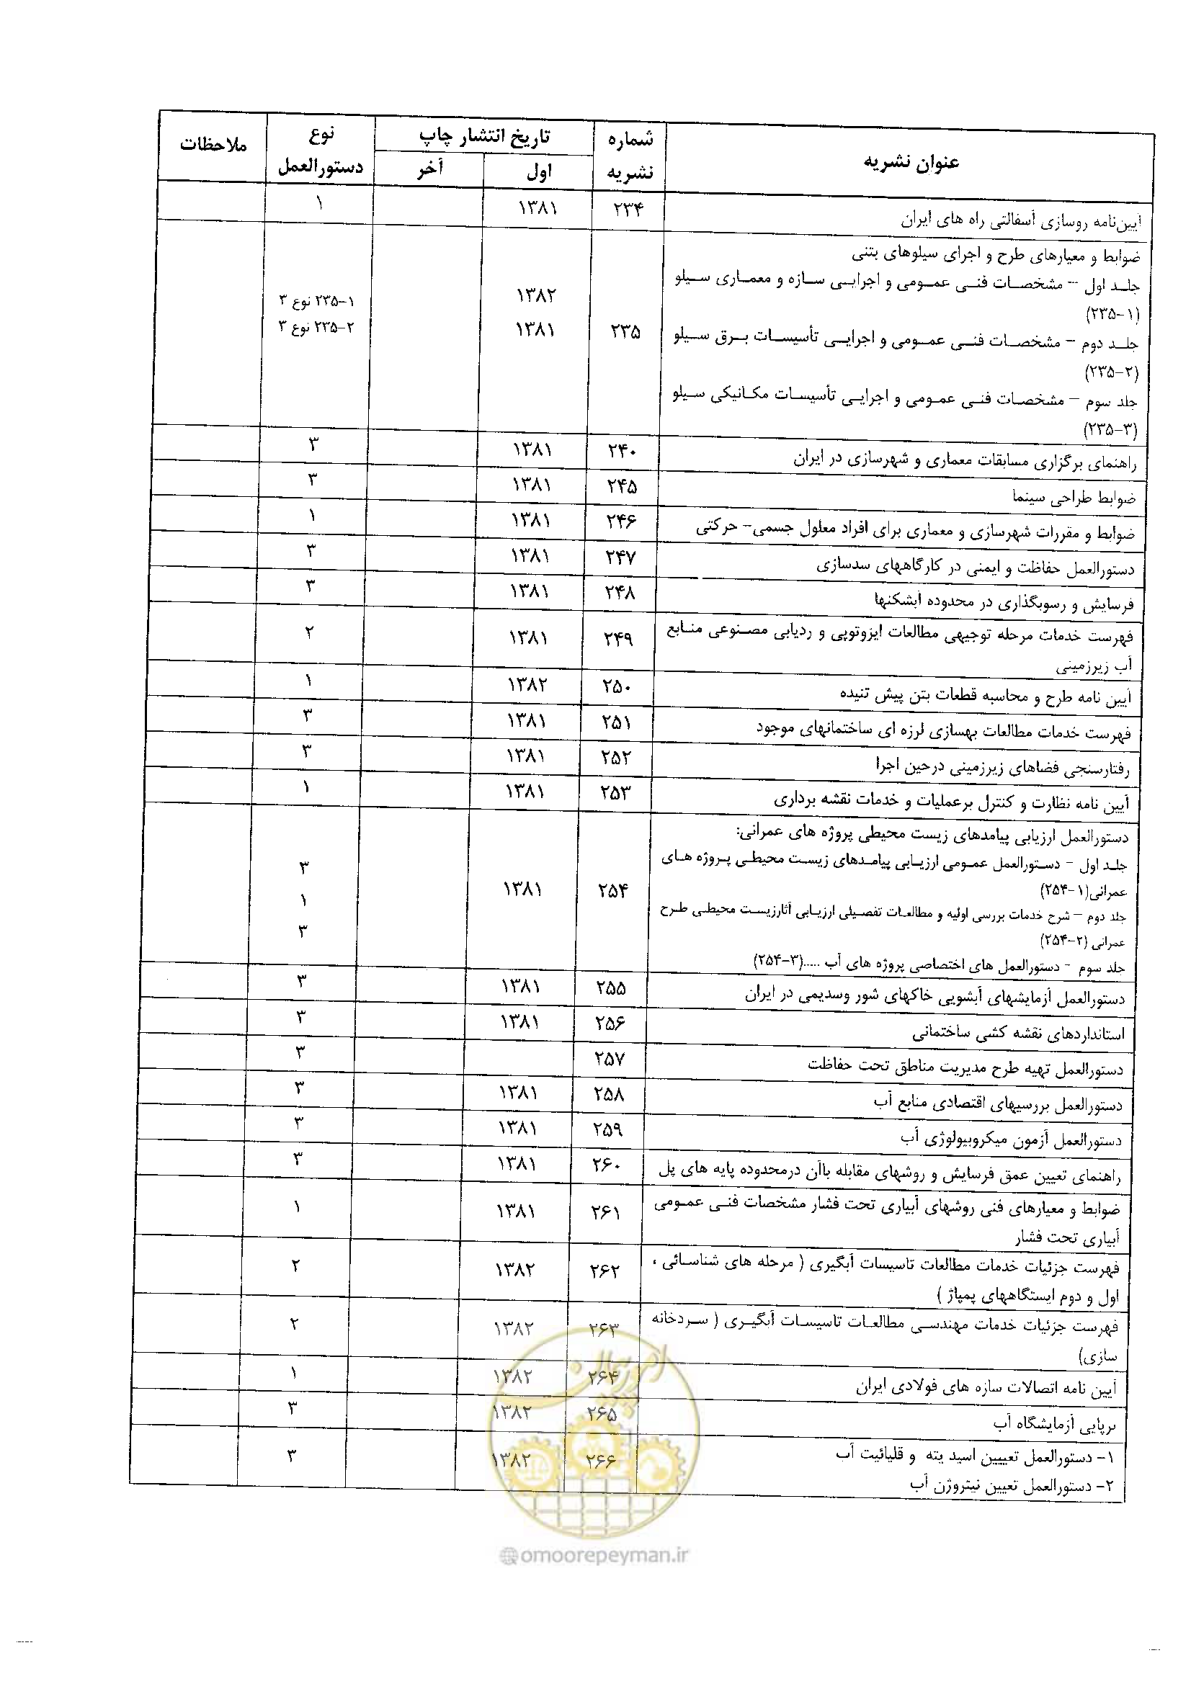 عنوان نشریه شماره نشریه تاریخ انتشار چاپ نوع دستورالعمل ملاحظات
اول آخر
آیین‌نامه روسازی آسفالتی راه های ایران ۲۳۴ ۱۳۸۱ ۱
ضوابط و معیارهای طرح و اجرای سیلوهای بتنی
جلد اول – مشخصات فنی عمومی و اجرایی سازه و معماری سیلو
(۲۳۵-۱) ۱۳۸۲ ۲۳۵-۱ نوع ۳
جلد دوم – مشخصات فنی عمومی و اجرایی تأسیسات برق سیلو ۲۳۵ ۱۳۸۱ ۲۳۵-۲ نوع ۳
(۲۳۵-۲)
جلد سوم – مشخصات فنی عمومی و اجرایی تأسیسات مکانیکی سیلو
(۲۳۵-۳)
راهنمای برگزاری مسابقات معماری و شهرسازی در ایران ۲۴۰ ۱۳۸۱ ۳
ضوابط طراحی سینما ۲۴۵ ۱۳۸۱ ۳
ضوابط و مقررات شهرسازی و معماری برای افراد معلول جسمی- حرکتی ۲۴۶ ۱۳۸۱ ۱
دستورالعمل حفاظت و ایمنی در کارگاههای سدسازی ۲۴۷ ۱۳۸۱ ۳
فرسایش و رسوبگذاری در محدوده آبشکنها ۲۴۸ ۱۳۸۱ ۳
فهرست خدمات مرحله توجیهی مطالعات ایزوتوپی و ردیابی مصنوعی منابع ۲۴۹ ۱۳۸۱ ۲
آب زیرزمینی
آیین نامه طرح و محاسبه قطعات بتن پیش تنیده ۲۵۰ ۱۳۸۲ ۱
فهرست خدمات مطالعات بهسازی لرزه ای ساختمانهای موجود ۲۵۱ ۱۳۸۱ ۳
رفتارسنجی فضاهای زیرزمینی درحین اجرا ۲۵۲ ۱۳۸۱ ۳
آیین نامه نظارت و کنترل برعملیات و خدمات نقشه برداری ۲۵۳ ۱۳۸۱ ۱
دستورالعمل ارزیابی پیامدهای زیست محیطی پروژه های عمرانی:
جلد اول – دستورالعمل عمومی ارزیابی پیامدهای زیست محیطی پروژه های ۳
عمرانی(۲۵۴-۱) ۲۵۴ ۱۳۸۱ ۱
جلد دوم – شرح خدمات بررسی اولیه و مطالعات تفصیلی ارزیابی آثارزیست محیطی طرح
عمرانی (۲۵۴-۲) ۳
جلد سوم - دستورالعمل های اختصاصی پروژه های آب .....(۲۵۴-۳)
دستورالعمل آزمایشهای آبشویی خاکهای شور وسدیمی در ایران ۲۵۵ ۱۳۸۱ ۳
استانداردهای نقشه کشی ساختمانی ۲۵۶ ۱۳۸۱ ۳
دستورالعمل تهیه طرح مدیریت مناطق تحت حفاظت ۲۵۷ ۳
دستورالعمل بررسیهای اقتصادی منابع آب ۲۵۸ ۱۳۸۱ ۳
دستورالعمل آزمون میکروبیولوژی آب ۲۵۹ ۱۳۸۱ ۳
راهنمای تعیین عمق فرسایش و روشهای مقابله باآن درمحدوده پایه های پل ۲۶۰ ۱۳۸۱ ۳
ضوابط و معیارهای فنی روشهای آبیاری تحت فشار مشخصات فنی عمومی ۲۶۱ ۱۳۸۱ ۱
آبیاری تحت فشار
فهرست جزئیات خدمات مطالعات تاسیسات آبگیری ( مرحله های شناسائی ، ۲۶۲ ۱۳۸۲ ۲
اول و دوم ایستگاههای پمپاژ )
فهرست جزئیات خدمات مهندسی مطالعات تاسیسات آبگیری ( سردخانه ۲۶۳ ۱۳۸۲ ۲
سازی)
آیین نامه اتصالات سازه های فولادی ایران ۲۶۴ ۱۳۸۲ ۱
برپایی آزمایشگاه آب ۲۶۵ ۱۳۸۲ ۳
۱- دستورالعمل تعییین اسید یته و قلیائیت آب ۲۶۶ ۱۳۸۲ ۳
۲- دستورالعمل تعیین نیتروژن آب
امور پیمان
@omoorepeyman.ir